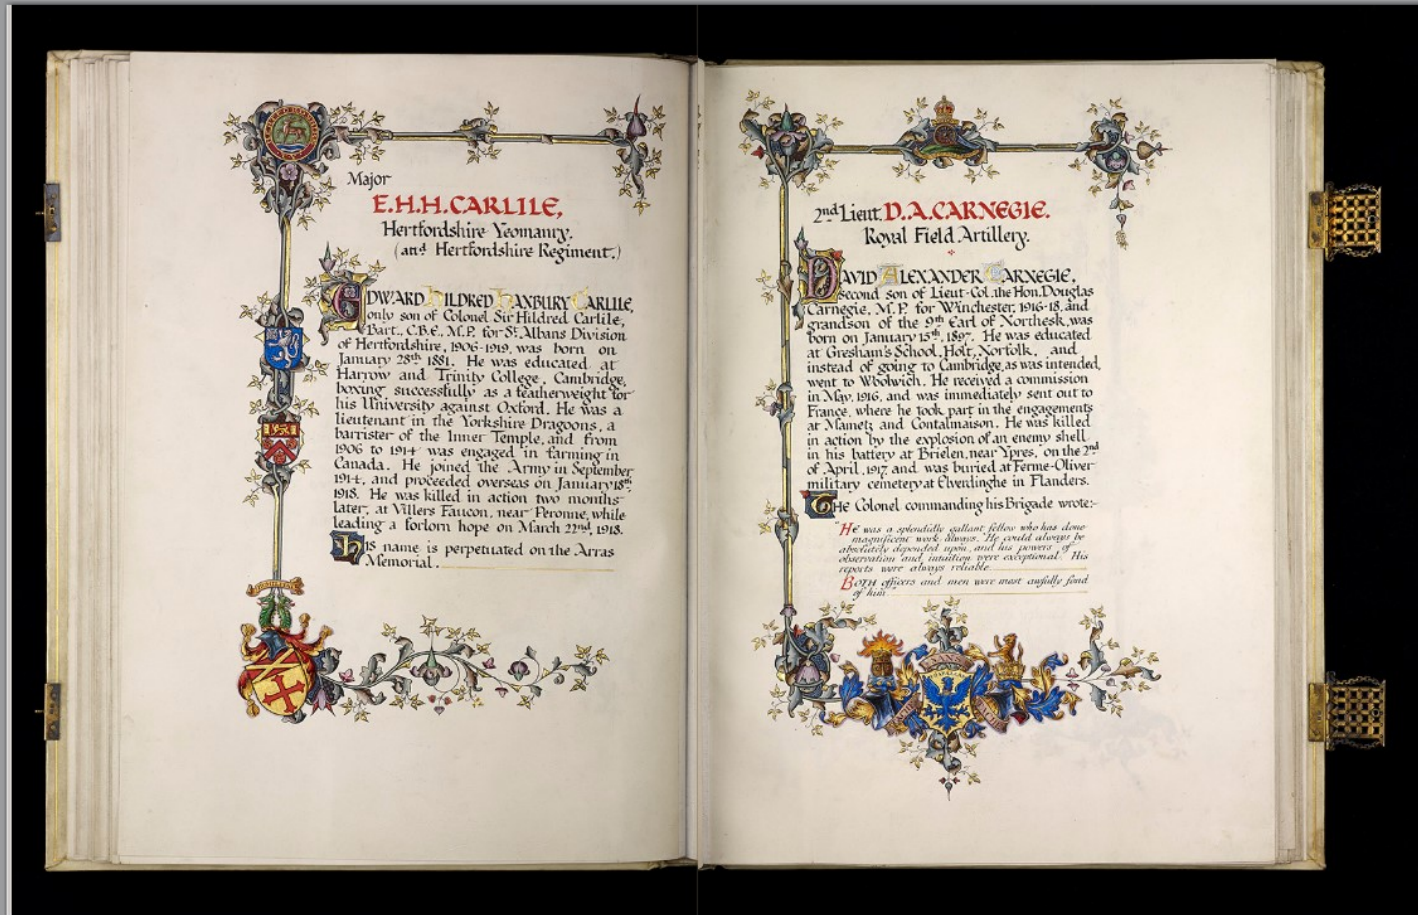 Major
E.H.H. CARLILE,
Hertfordshire Yeomanry.
(and Hertfordshire Regiment.)
EDWARD HILDRED HANBURY CARLILE,
only son of Colonel Sir Hildred Carlile,
Bart., C.B.E., M.P. for St. Albans Division
of Hertfordshire, 1906-1919, was born on
January 28th 1881. He was educated at
Harrow and Trinity College, Cambridge,
boxing successfully as a featherweight for
his University against Oxford. He was a
lieutenant in the Yorkshire Dragoons, a
barrister of the Inner Temple, and from
1906 to 1914 was engaged in farming in
Canada. He joined the Army in September
1914, and proceeded overseas on January 18th
1918. He was killed in action two months
later, at Villers Faucon, near Peronne, while
leading a forlorn hope on March 22nd, 1918.
His name is perpetuated on the Arras
Memorial.
2nd Lieut. D.A. CARNEGIE.
Royal Field Artillery.
DAVID ALEXANDER CARNEGIE,
second son of Lieut-Col. the Hon. Douglas
Carnegie, M.P. for Winchester, 1916-18, and
grandson of the 9th Earl of Northesk, was
born on January 15th, 1897. He was educated
at Gresham's School, Holt, Norfolk, and
instead of going to Cambridge, as was intended,
went to Woolwich. He received a commission
in May, 1916, and was immediately sent out to
France, where he took part in the engagements
at Mametz and Contalmaison. He was killed
in action by the explosion of an enemy shell
in his battery at Brielen, near Ypres, on the 2nd
of April, 1917, and was buried at Ferme-Oliver
military cemetery at Elverdinghe in Flanders.
The Colonel commanding his Brigade wrote:-
"He was a splendidly gallant fellow who has done
magnificent work, always. He could always be
absolutely depended upon, and his powers of
observation and intuition were exceptional. His
reports were always reliable
BOTH officers and men were most awfully fond
of him